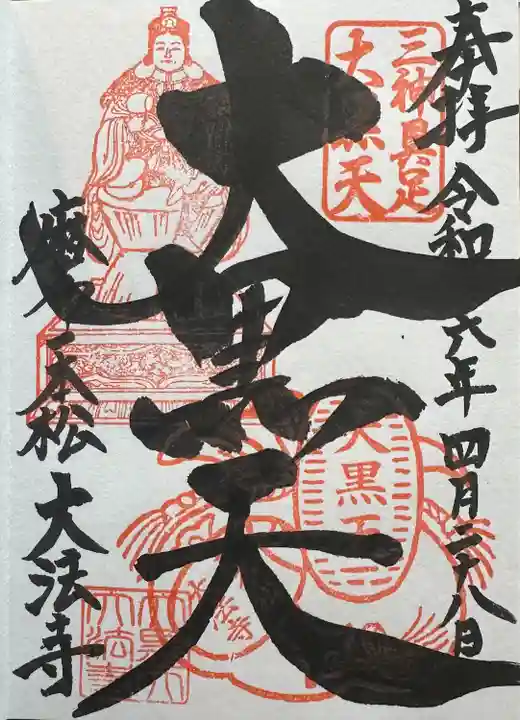 奉拝 令和六年四月二十八日
三神具足
大黒天
大黒天
大黒天
麻布一本松 大法寺